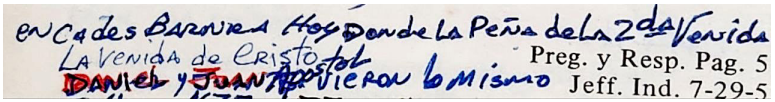 en Cades BARNEA Hoy Donde LA Peña de la 2da Venida
LA Venida de CRISTO
Preg. y Resp. Pag. 5
DANIEL y JUAN Apostol VIERON lo Mismo Jeff. Ind. 7-29-5